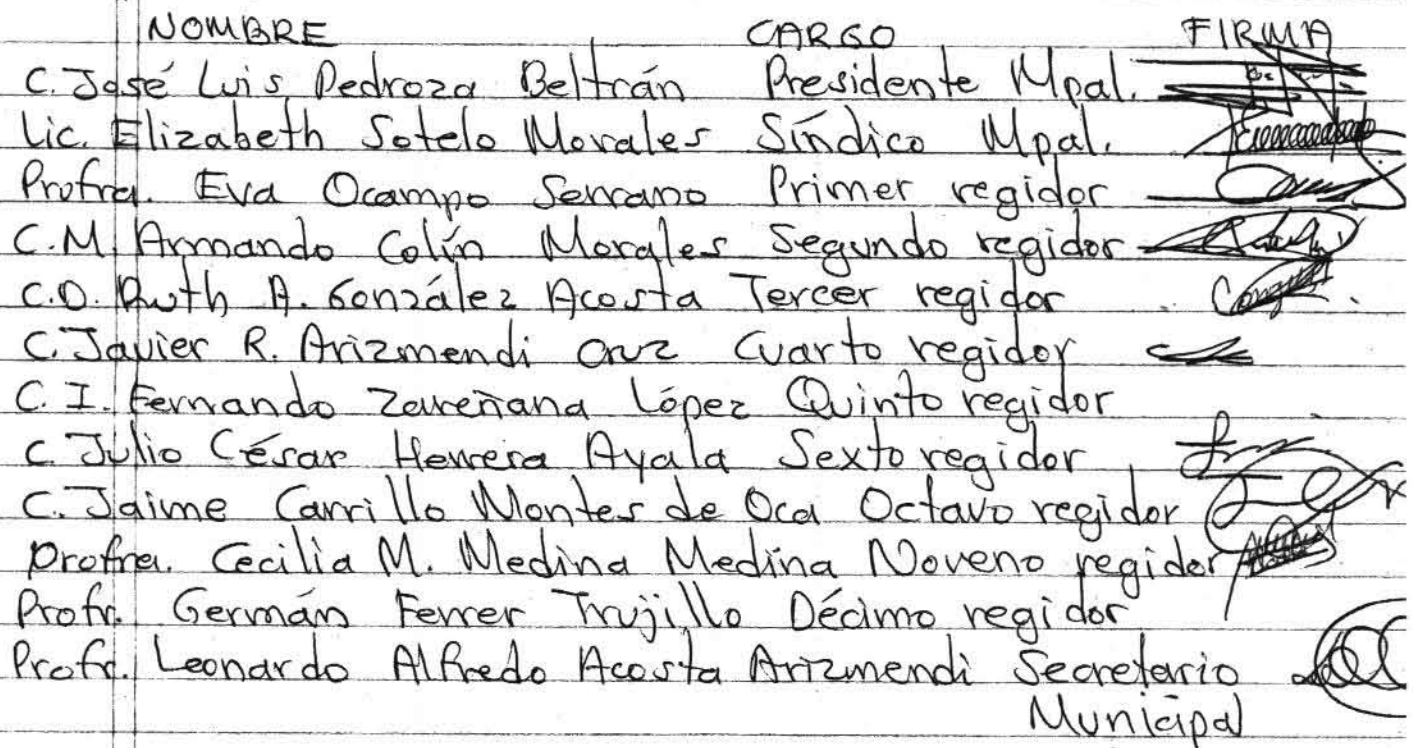 NOMBRE CARGO FIRMA
C. José Luis Pedroza Beltrán Presidente Mpal.
Lic. Elizabeth Sotelo Morales Síndico Mpal.
Profra. Eva Ocampo Serrano Primer regidor
C.M. Armando Colín Morales Segundo regidor
C.D. Ruth A. González Acosta Tercer regidor
C. Javier R. Arizmendi Cruz Cuarto regidor
C. I. Fernando López Quinto regidor
C. Julio César Herrera Ayala Sexto regidor
C. Jaime Carrillo Montes de Oca Octavo regidor
Profra. Cecilia M. Medina Medina Noveno regidor
Profr. Germán Ferrer Trujillo Décimo regidor
Profr. Leonardo Alfredo Acosta Arizmendi Secretario
Municipal